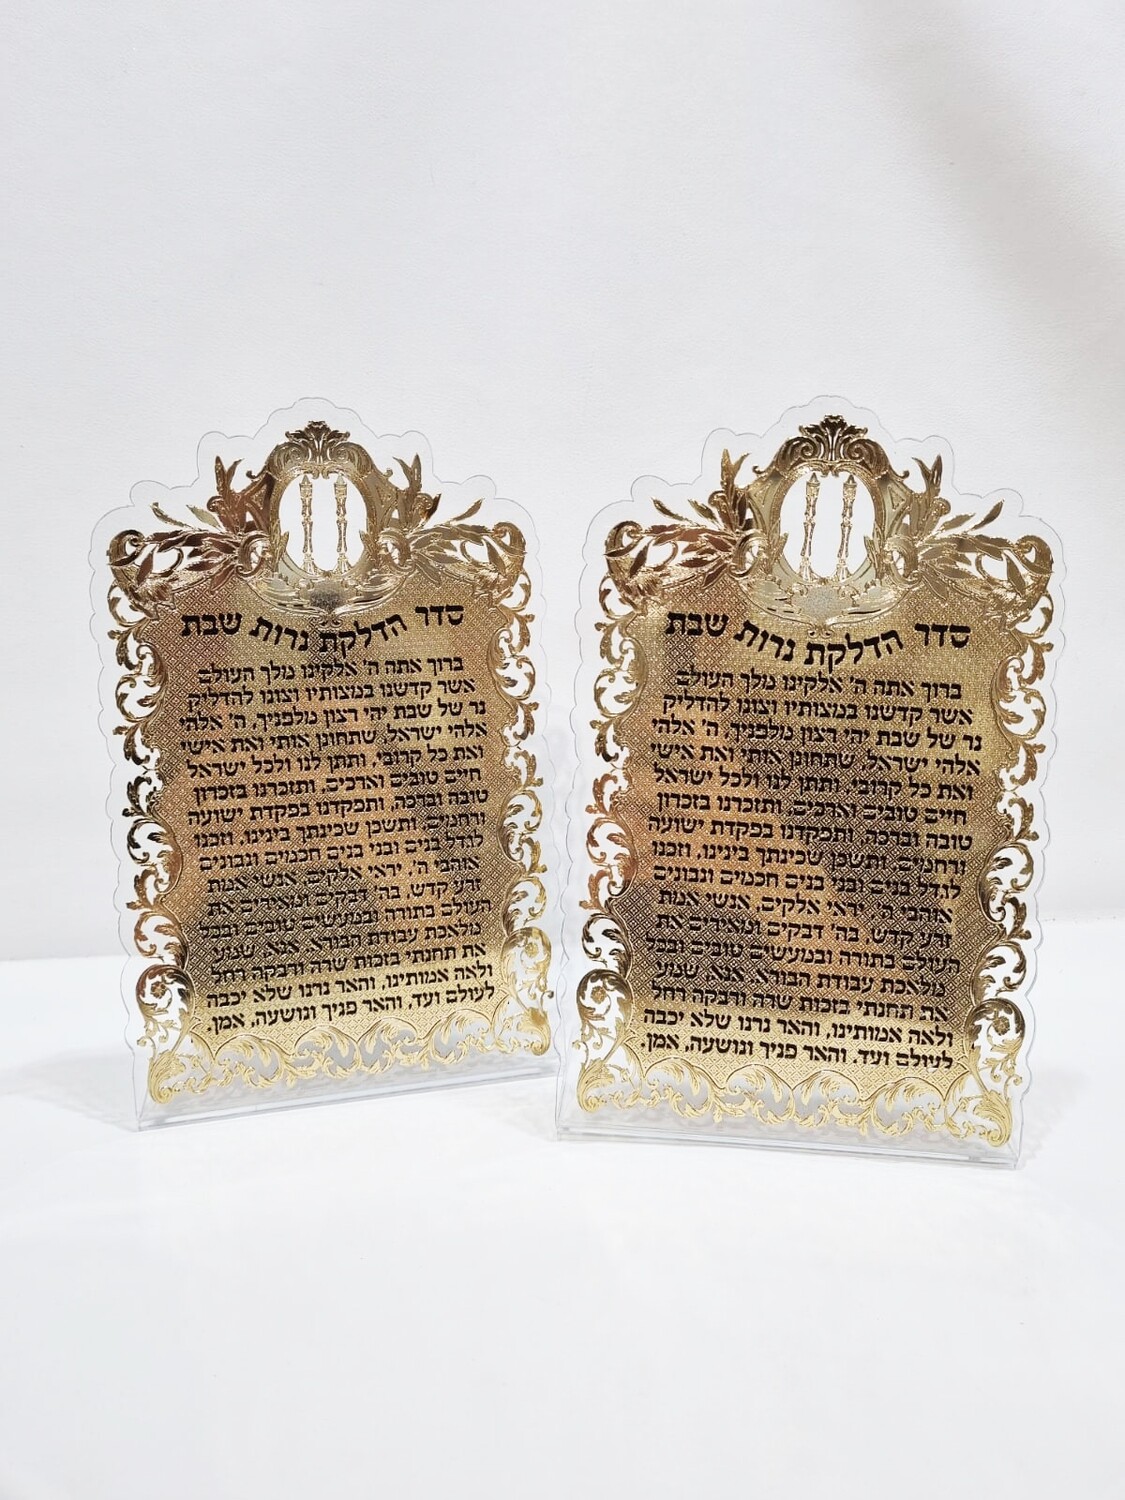 סדר הדלקת נרות שבת
ברוך אתה ה' אלקינו מלך העולם
אשר קדשנו במצותיו וצונו להדליק
נר של שבת יהי רצון מלפניך, ה' אלהי
אלהי ישראל, שתחונן אותי ואת אישי
ואת כל קרובי, ותתן לנו ולכל ישראל
חיים טובים וארכים, ותזכרנו בזכרון
טובה וברכה, ותפקדנו בפקדת ישועה
ורחמים, ותשכן שכינתך בינינו, וזכנו
לגדל בנים ובני בנים חכמים ונבונים
אוהבי ה', יראי אלקים, אנשי אמת
זרע קדש, בה' דבקים ומאירים את
העולם בתורה ובמעשים טובים ובכל
מלאכת עבודת הבורא. אנא, שמע
את תחנתי בזכות שרה ורבקה רחל
ולאה אמותינו, והאר נרנו שלא יכבה
לעולם ועד, והאר פניך ונושעה, אמן.
סדר הדלקת נרות שבת
ברוך אתה ה' אלקינו מלך העולם
אשר קדשנו במצותיו וצונו להדליק
נר של שבת יהי רצון מלפניך, ה' אלהי
אלהי ישראל, שתחונן אותי ואת אישי
ואת כל קרובי, ותתן לנו ולכל ישראל
חיים טובים וארכים, ותזכרנו בזכרון
טובה וברכה, ותפקדנו בפקדת ישועה
ורחמים, ותשכן שכינתך בינינו, וזכנו
לגדל בנים ובני בנים חכמים ונבונים
אוהבי ה', יראי אלקים, אנשי אמת
זרע קדש, בה' דבקים ומאירים את
העולם בתורה ובמעשים טובים ובכל
מלאכת עבודת הבורא. אנא, שמע
את תחנתי בזכות שרה ורבקה רחל
ולאה אמותינו, והאר נרנו שלא יכבה
לעולם ועד, והאר פניך ונושעה, אמן.